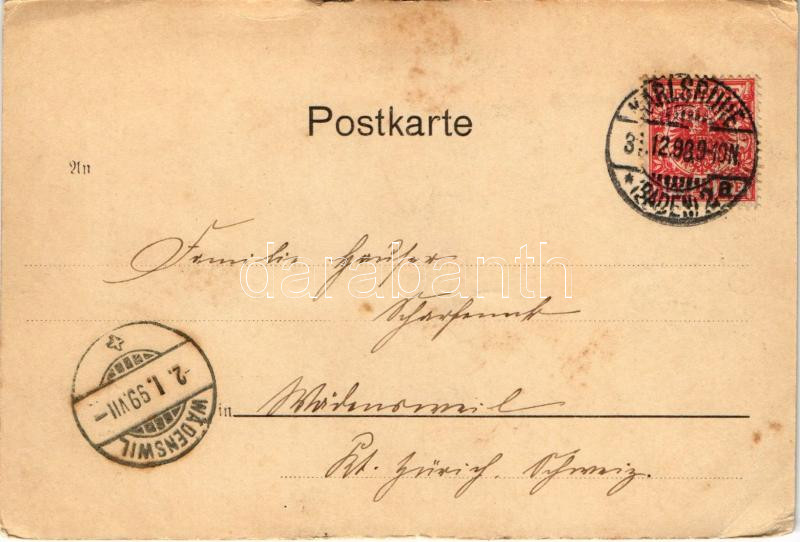 Postkarte
KARLSRUHE
31.12.98.9-10N.
* (BADEN) 2a
An
Familie Hauser
darabanth
Scharfeneck
-2.I.99.VII-
WÄDENSWIL
in Wädensweil
Kt. Zürich. Schweiz.